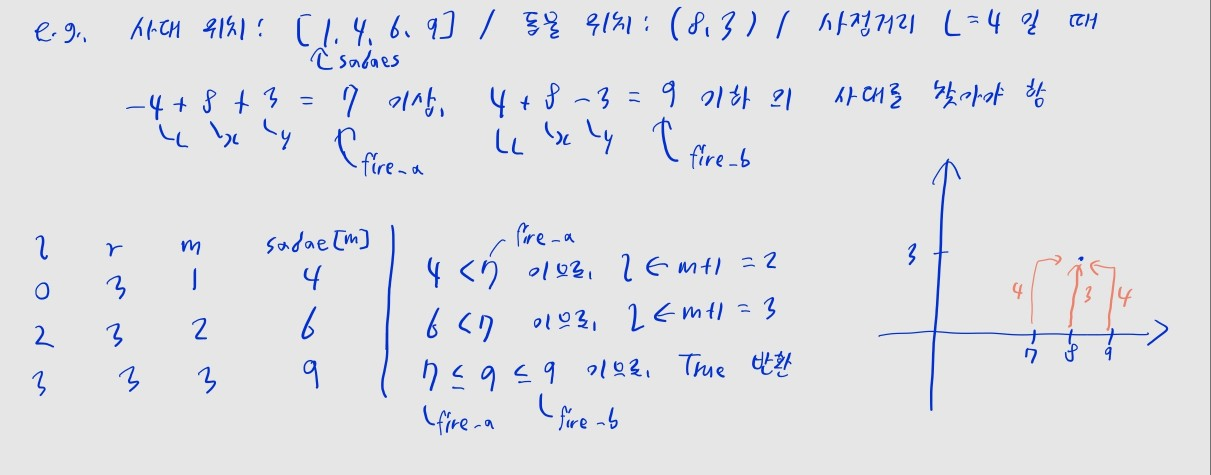 e.g. 사대 위치: [1, 4, 6, 9] / 동물 위치: (8, 3) / 사정거리 L=4 일 때
sadaes
-4 + 8 + 3 = 7 이상, 4 + 8 - 3 = 9 이하 의 사대를 찾아야 함
L x y fire-a L x y fire-b
l r m sadae[m] fire-a
0 3 1 4 4 < 7 이므로, l ← m+1 = 2
2 3 2 6 6 < 7 이므로, l ← m+1 = 3
3 3 3 9 7 ≤ 9 ≤ 9 이므로, True 반환
fire-a fire-b
3
4 3 4
7 8 9